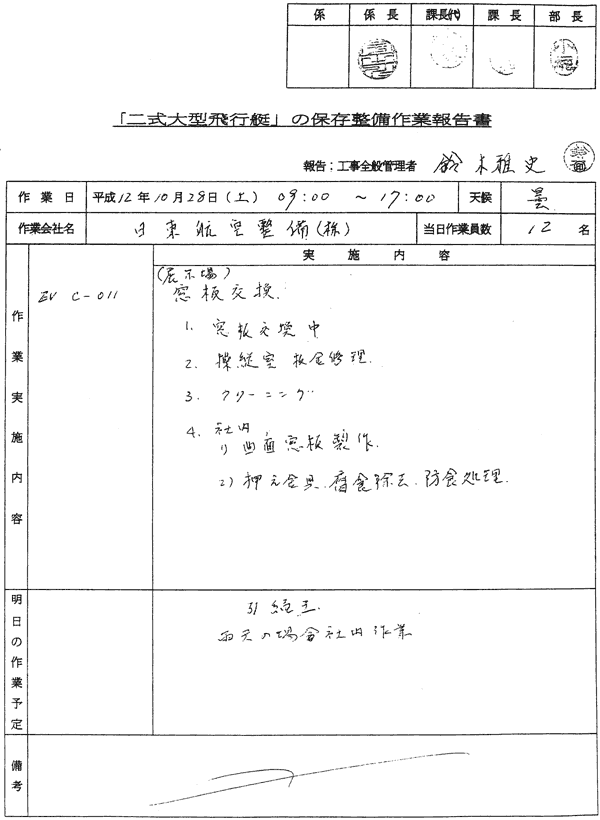 係 係長 課長(代) 課長 部長
「二式大型飛行艇」の保存整備作業報告書
報告：工事全般管理者 鈴木雅史
作業日 平成12年10月28日(土) 09:00 ～ 17:00 天候 曇
作業会社名 日東航空整備(株) 当日作業員数 12 名
実施内容
作業実施内容
EV C-011
(展示場)
窓板交換.
1. 窓板交換中
2. 操縦室 板金修理.
3. クリーニング
4. 社内
1) 曲面窓板製作.
2) 押え金具.腐食除去.防食処理.
明日の作業予定
引続き.
雨天の場合社内作業
備考